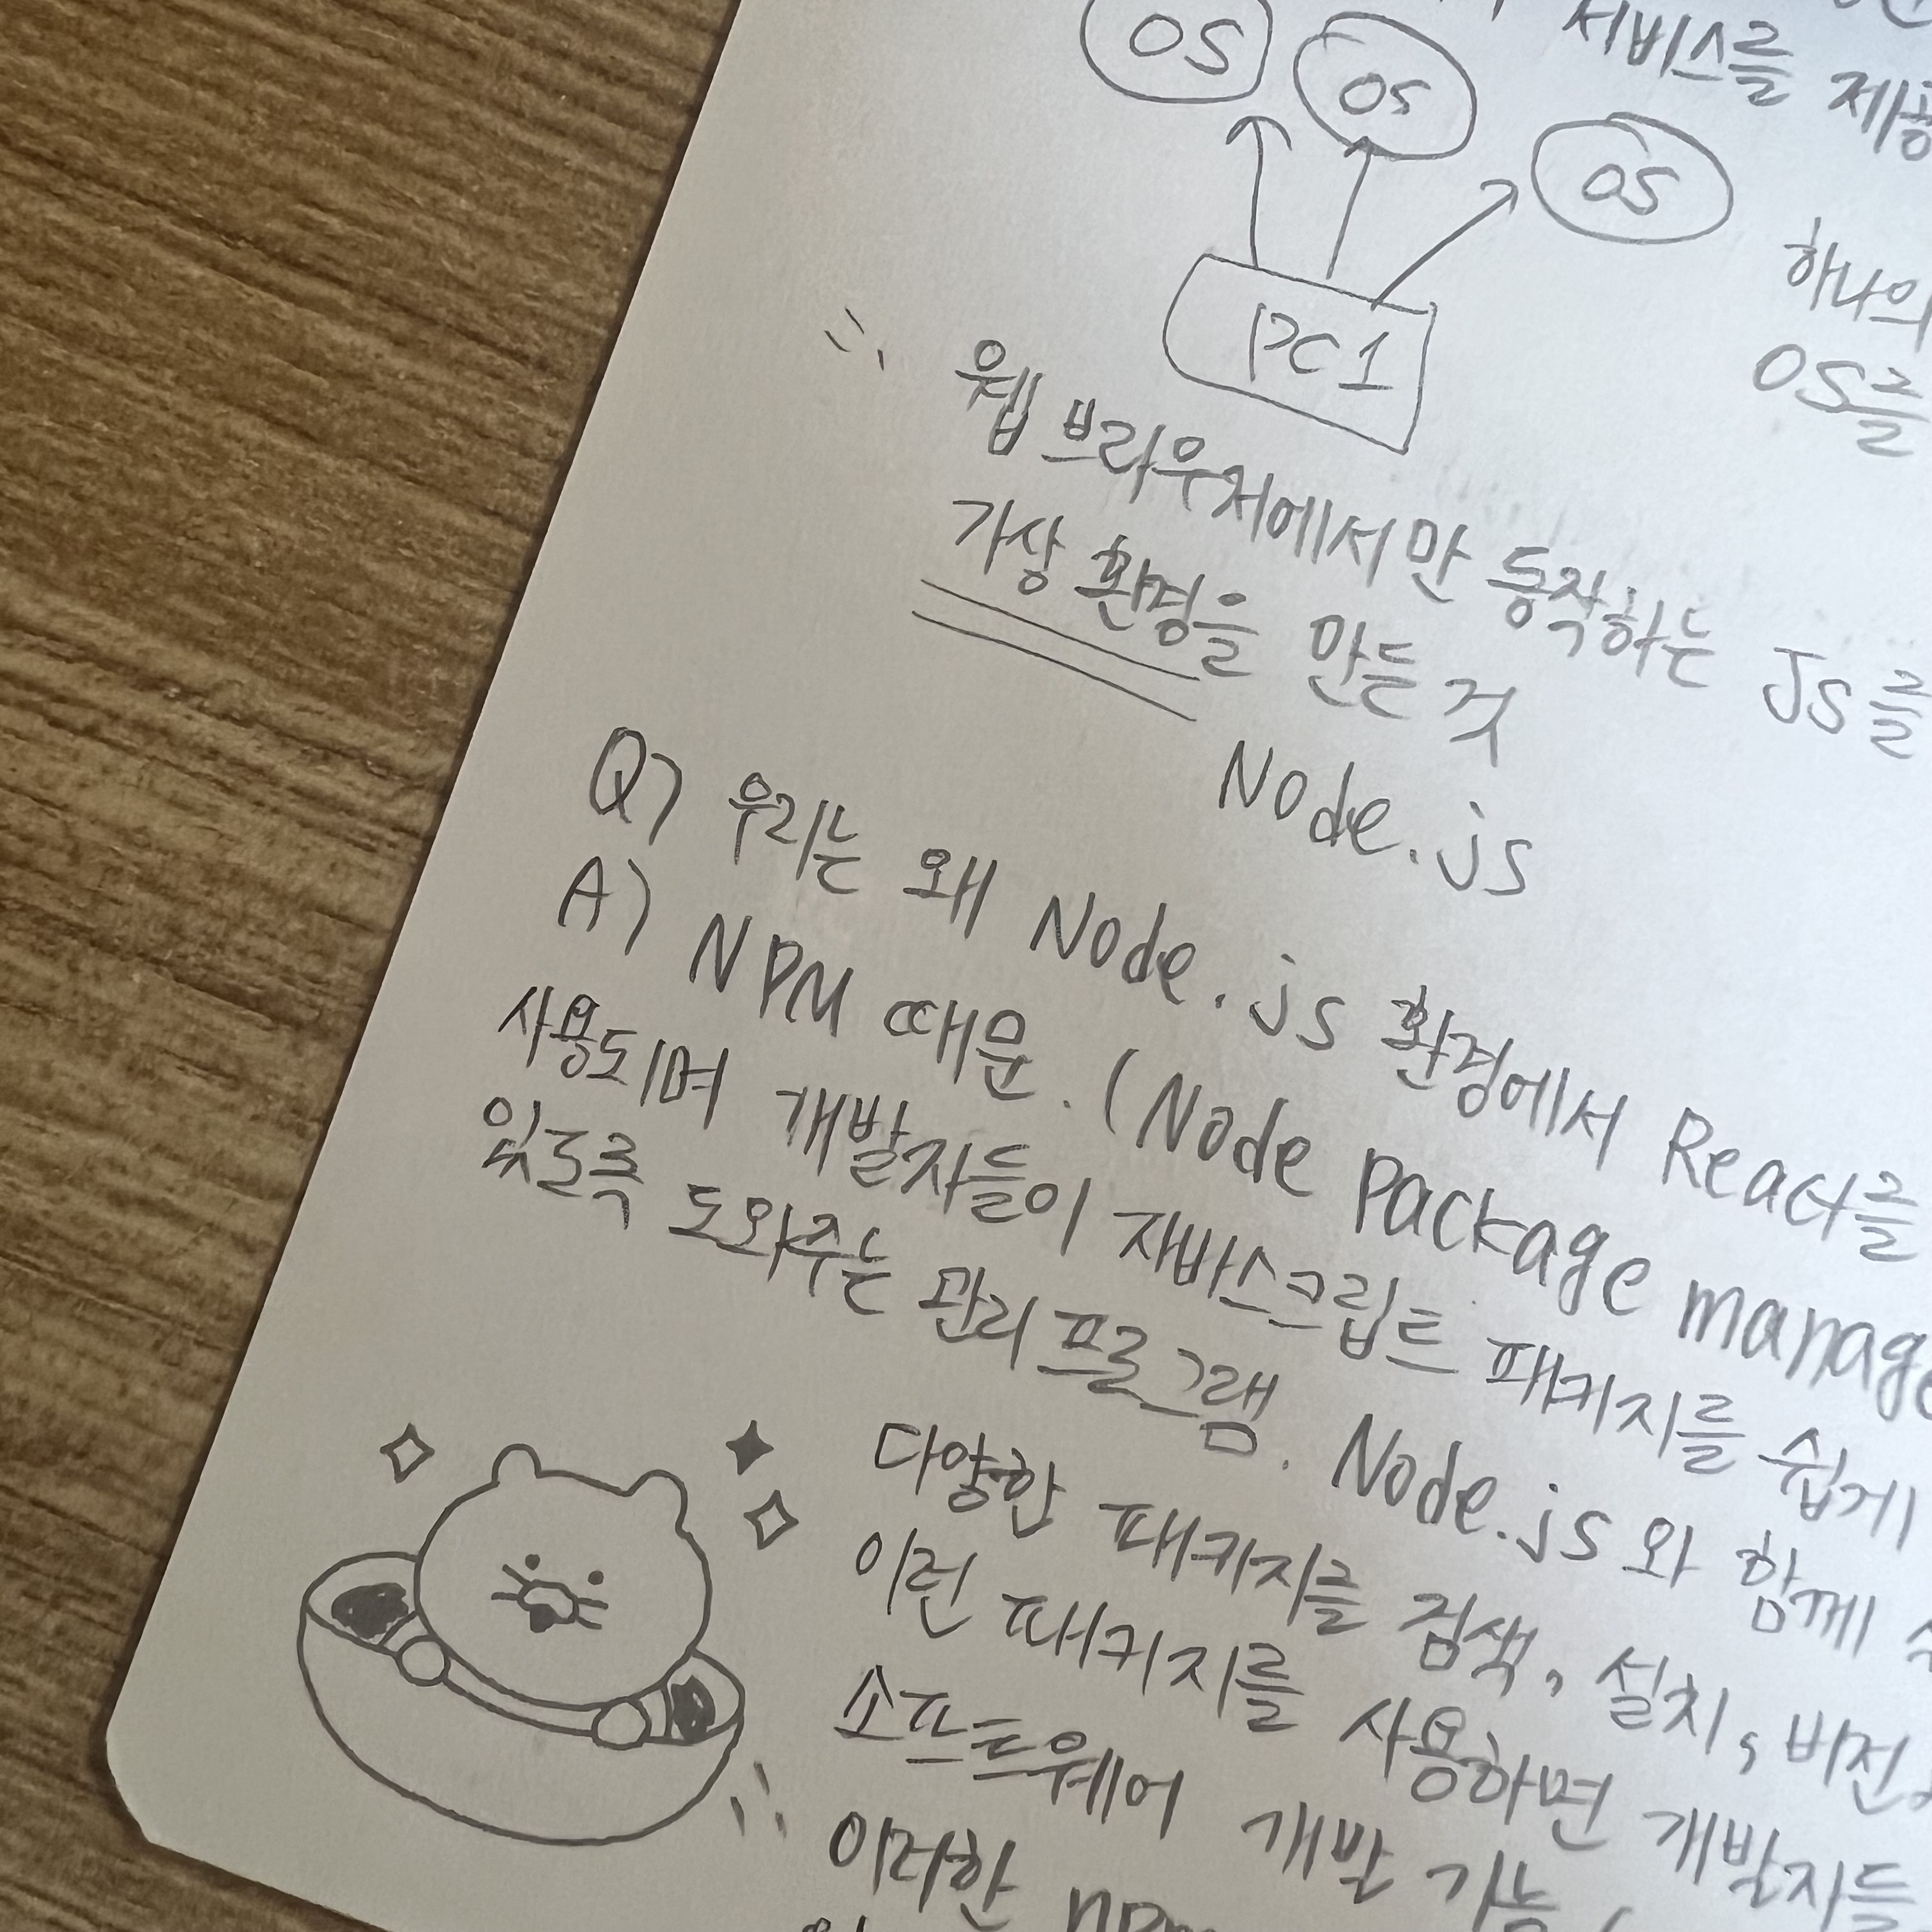 서비스를 제공
OS
OS
OS
PC1
하나의
OS를
웹 브라우저에서만 동작하는 JS를
가상 환경을 만든 것
Node.js
Q) 우리는 왜 Node.js 환경에서 React를
A) NPM 때문. (Node package manage
사용되며 개발자들이 자바스크립트 패키지를 쉽게
있도록 도와주는 관리 프로그램. Node.js와 함께
다양한 패키지를 검색, 설치, 버전
이런 패키지를 사용하면 개발자들
소프트웨어 개발 가능
이러한 npm